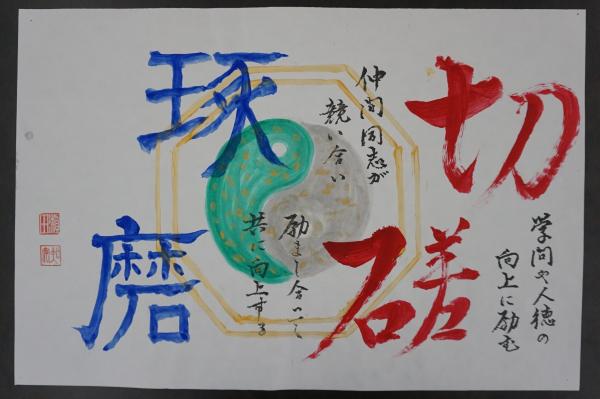 切磋
琢磨
学問や人徳の
向上に励む
仲間同志が
競い合い
励まし合いて
共に向上する